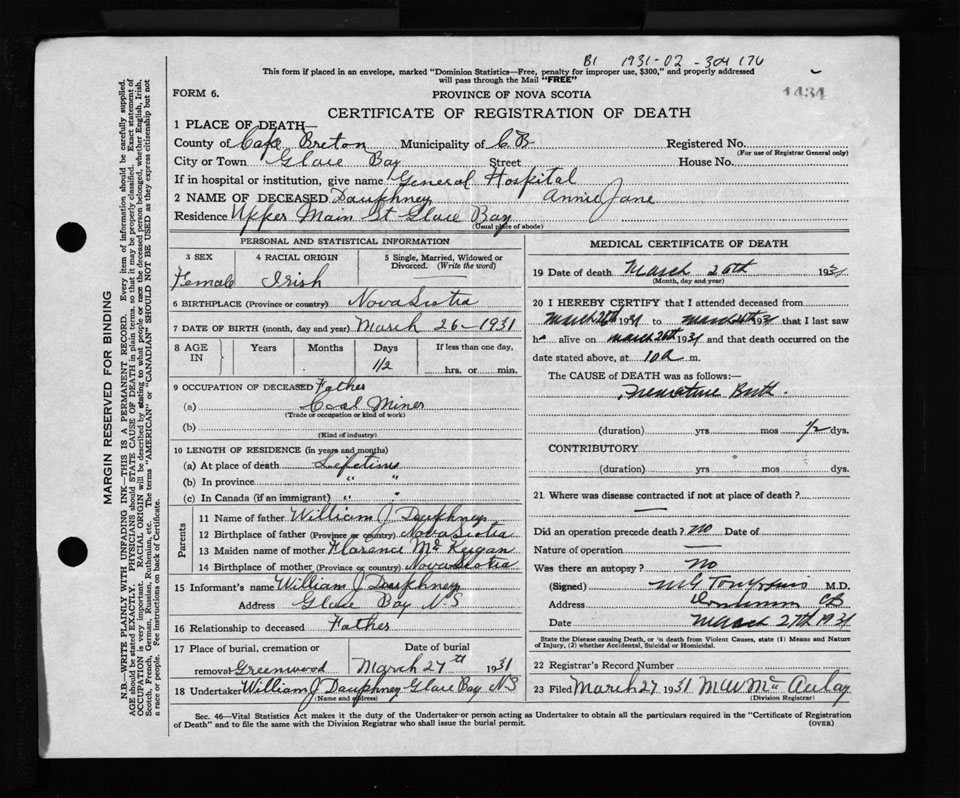 B1 1931-02-304 176
This form if placed in an envelope, marked "Dominion Statistics—Free, penalty for improper use, $300," and properly addressed
will pass through the Mail "FREE"
1434
FORM 6.
PROVINCE OF NOVA SCOTIA
CERTIFICATE OF REGISTRATION OF DEATH
1 PLACE OF DEATH—
County of Cape Breton Municipality of C.B. Registered No.
(For use of Registrar General only)
City or Town Glace Bay Street House No.
If in hospital or institution, give name General Hospital
2 NAME OF DECEASED Dauphney Annie Jane
Residence Upper Main St Glace Bay
(Usual place of abode)
PERSONAL AND STATISTICAL INFORMATION
3 SEX 4 RACIAL ORIGIN 5 Single, Married, Widowed or Divorced. (Write the word)
Female Irish
6 BIRTHPLACE (Province or country) Nova Scotia
7 DATE OF BIRTH (month, day and year) March 26-1931
8 AGE IN Years Months Days If less than one day,
1/2 hrs. or min.
9 OCCUPATION OF DECEASED Father
(a) Coal Miner
(Trade or occupation or kind of work)
(b)
(Kind of industry)
10 LENGTH OF RESIDENCE (in years and months)
(a) At place of death Lifetime
(b) In province " "
(c) In Canada (if an immigrant) " "
Parents
11 Name of father William J Dauphney
12 Birthplace of father (Province or country) Nova Scotia
13 Maiden name of mother Florence Mc Keigan
14 Birthplace of mother (Province or country) Nova Scotia
15 Informant's name William J Dauphney
Address Glace Bay N.S
16 Relationship to deceased Father
17 Place of burial, cremation or Date of burial
removal Greenwood March 27th 1931
18 Undertaker William J. Dauphney Glace Bay NS
(Name and address)
MEDICAL CERTIFICATE OF DEATH
19 Date of death March 26th 1931
(Month, day and year)
20 I HEREBY CERTIFY that I attended deceased from
March 26th 1931 to March 26th 1931 that I last saw
h alive on March 26th 1931 and that death occurred on the
date stated above, at 10 a m.
The CAUSE of DEATH was as follows:—
Premature Birth.
(duration) yrs mos 1/2 dys.
CONTRIBUTORY
(duration) yrs. mos. dys.
21 Where was disease contracted if not at place of death?
—
Did an operation precede death? no Date of
Nature of operation —
Was there an autopsy? no
(Signed) M.D.
Address Dominion CB
Date March 27th 1931
State the Disease causing Death, or in death from Violent Causes, state (1) Means and Nature
of Injury, (2) whether Accidental, Suicidal or Homicidal.
22 Registrar's Record Number
23 Filed March 27 1931 M W Mc Aulay
(Division Registrar)
Sec. 46—Vital Statistics Act makes it the duty of the Undertaker or person acting as Undertaker to obtain all the particulars required in the "Certificate of Registration
of Death" and to file the same with the Division Registrar who shall issue the burial permit.
(OVER)
MARGIN RESERVED FOR BINDING
N.B.—WRITE PLAINLY WITH UNFADING INK—THIS IS A PERMANENT RECORD. Every item of information should be carefully supplied.
AGE should be stated EXACTLY. PHYSICIANS should STATE CAUSE OF DEATH in plain terms, so that it may be properly classified. Exact statement of
OCCUPATION is very important. RACIAL ORIGIN will be described by stating to what people or race the deceased person belonged, whether English, Irish,
Scotch, French, German, Russian, Ruthenian, etc. The terms "AMERICAN" or "CANADIAN" SHOULD NOT BE USED as they express citizenship but not
a race or people. Fee instructions on back of Certificate.